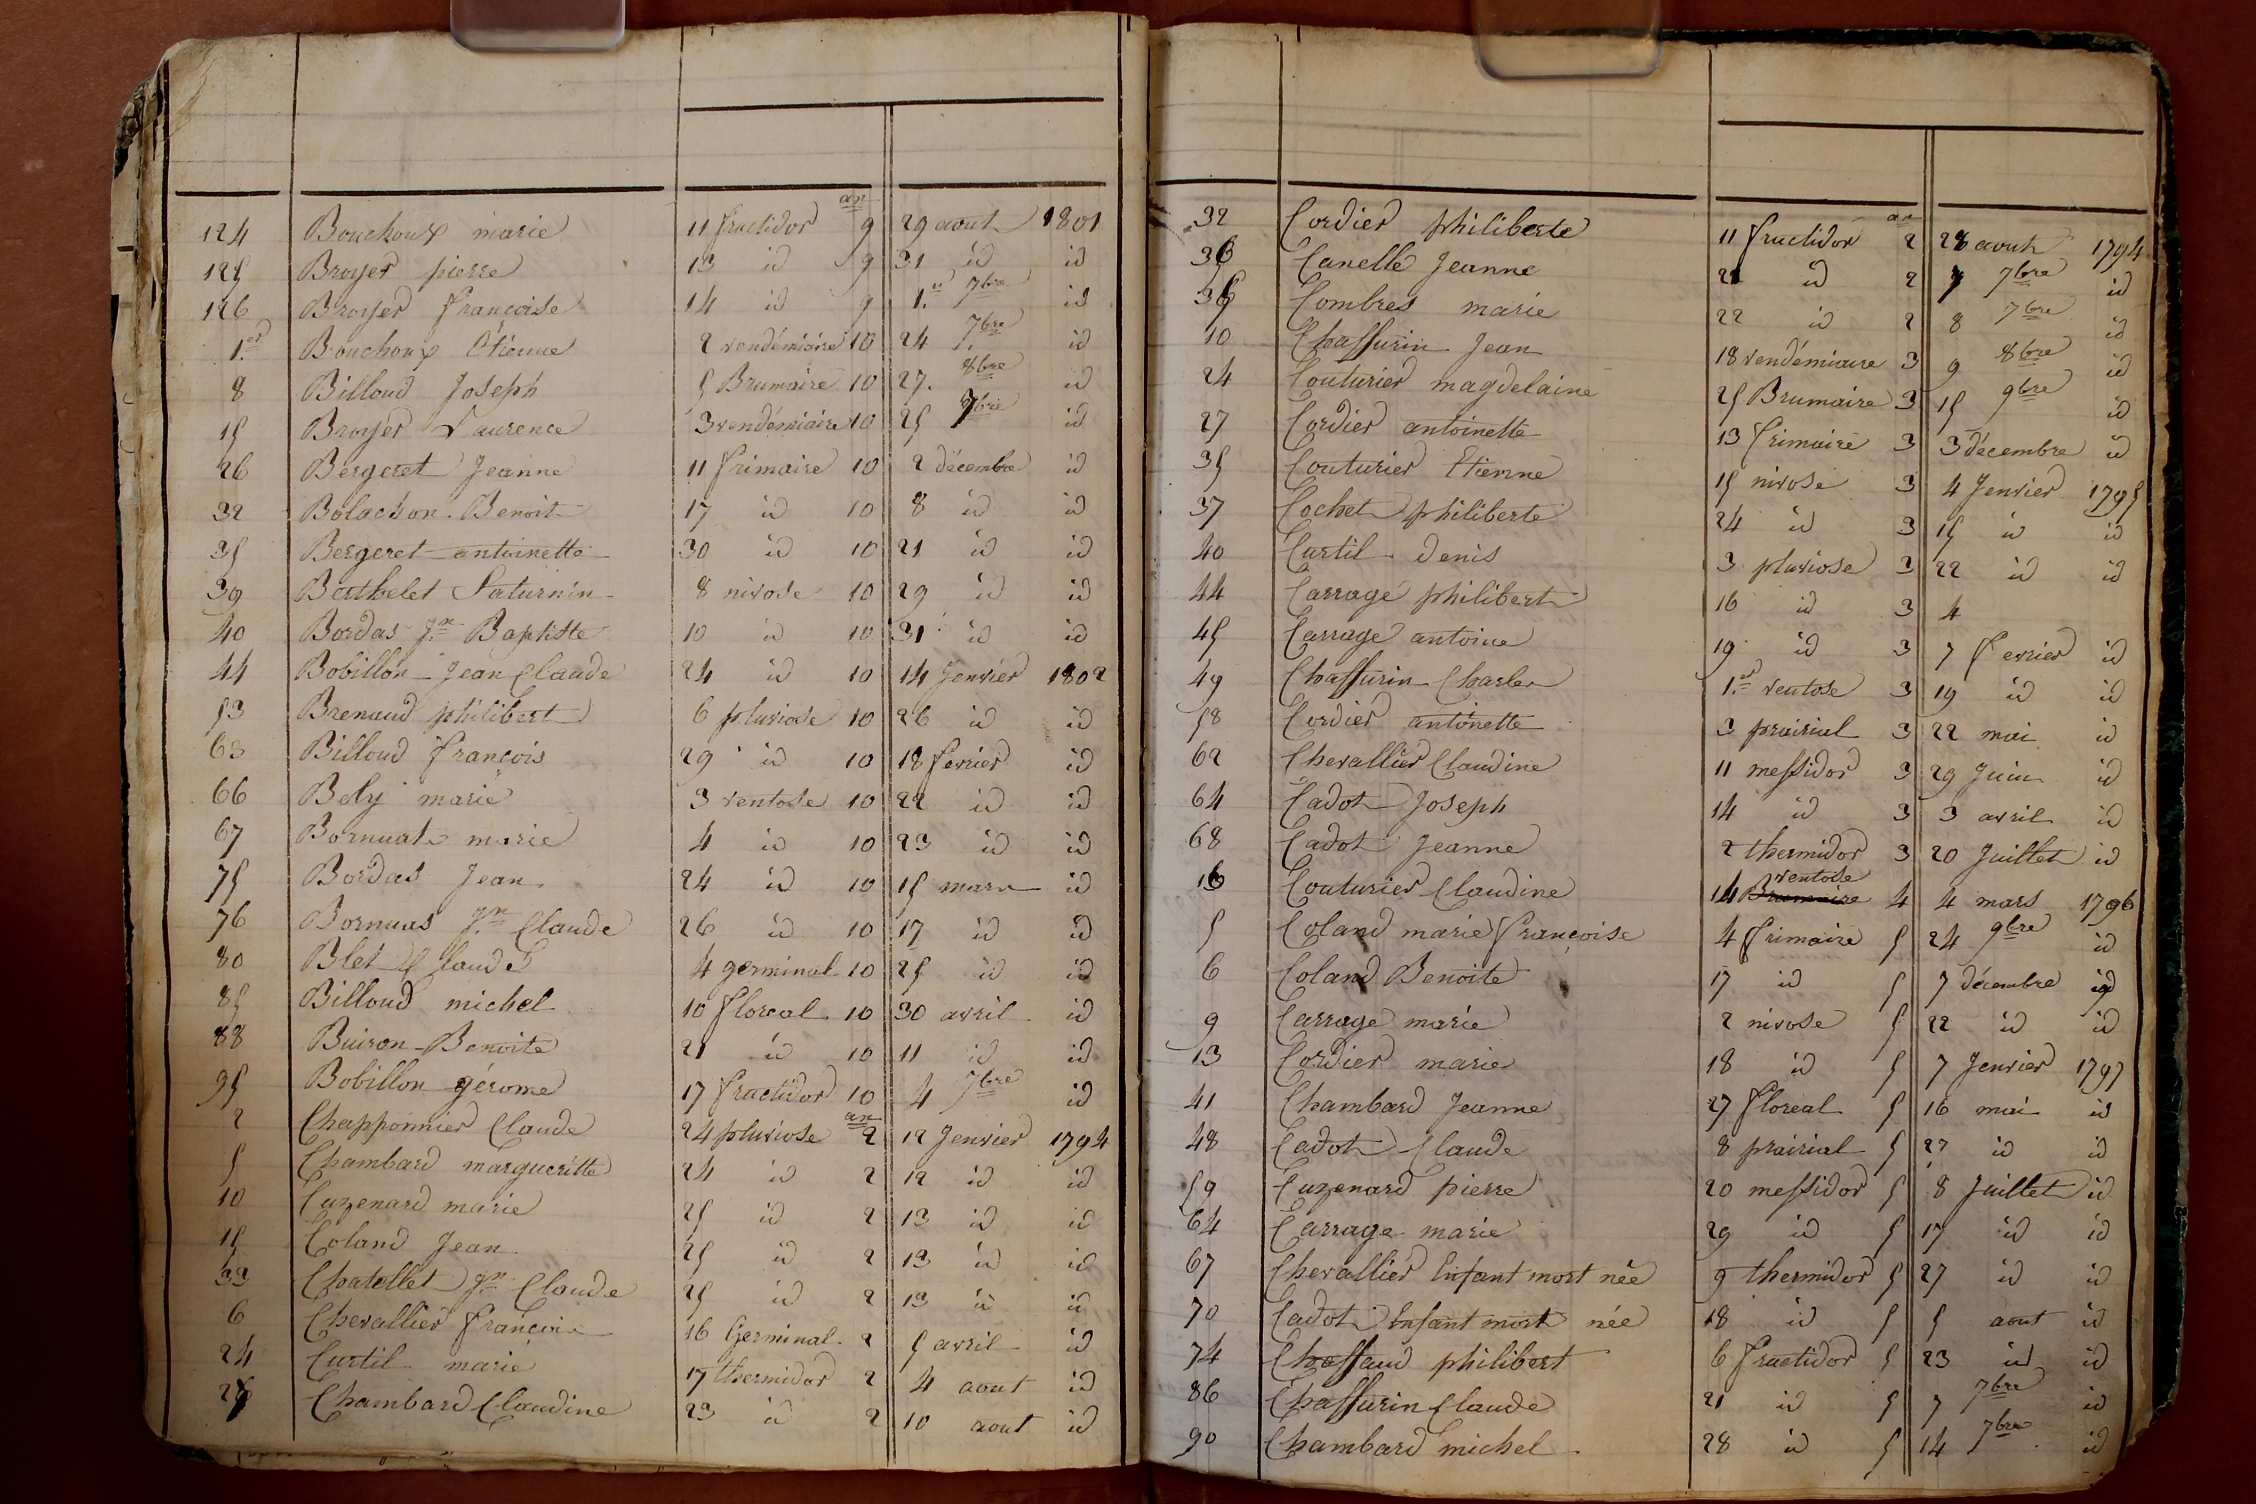 an
124 Bouchoux marie 11 fructidor 9 29 aout 1801
125 Broyer pierre 13 id 9 31 id id
126 Broyer françoise 14 id 9 1.er 7bre id
1.er Bouchoux Étienne 2 vendémiaire 10 24 7bre id
8 Billoud Joseph 5 Brumaire 10 27. 8bre id
15 Broyer Laurence 3 vendémiaire 10 25 7bre id
26 Bergeret Jeanne 11 frimaire 10 2 décembre id
32 Bolachon Benoit 17 id 10 8 id id
35 Bergeret antoinette 30 id 10 21 id id
39 Berthelet Saturnin 8 nivose 10 29 id id
40 Bordas Jn Baptiste 10 id 10 31 id id
44 Bobillon Jean Claude 24 id 10 14 Jenvier 1802
53 Brenaud philibert 6 pluviose 10 26 id id
63 Billoud françois 29 id 10 18 fevrier id
66 Bely marie 3 ventose 10 22 id id
67 Bornuat marie 4 id 10 23 id id
75 Bordas Jean 24 id 10 15 mars id
76 Bornuas Jn Claude 26 id 10 17 id id
80 Blet Claude 4 germinal 10 25 id id
85 Billoud michel 10 floreal 10 30 avril id
88 Buiron Benoite 21 id 10 11 id id
95 Bobillon gérome 17 fructidor 10 4 7bre id
an
2 Chapponnier Claude 24 pluviose 2 12 Jenvier 1794
5 Chambard margueritte 24 id 2 12 id id
10 Cuzenard marie 25 id 2 13 id id
15 Coland Jean 25 id 2 13 id id
33 Chatellet Jn Claude 25 id 2 13 id id
6 Chevallier 16 Germinal 2 5 avril id
24 Curtil marie 17 thermidor 2 4 aout id
28 Chambard Claudine 23 id 2 10 aout id
an
32 Cordier philiberte 11 fructidor 2 28 aout 1794
36 Canelle Jeanne 21 id 2 7 7bre id
39 Combres marie 22 id 2 8 7bre id
10 Chassurin Jean 18 vendémiaire 3 9 8bre id
24 Couturier magdelaine 25 Brumaire 3 15 9bre id
27 Cordier antoinette 13 frimaire 3 3 décembre id
35 Couturier Etienne 15 nivose 3 4 Jenvier 1795
37 Cochet philiberte 24 id 3 15 id id
40 Curtil denis 3 pluviose 3 22 id id
44 Carrage philibert 16 id 3 4
45 Carrage antoine 19 id 3 7 fevrier id
49 Chassurin Charles 1.er ventose 3 19 id id
58 Cordier antoinette 3 prairial 3 22 mai id
62 Chevallier Claudine 11 messidor 3 29 Juin id
64 Cadot Joseph 14 id 3 3 avril id
68 Cadot Jeanne 2 thermidor 3 20 Juillet id
ventose
16 Couturier Claudine 14 Brumaire 4 4 mars 1796
5 Coland marie françoise 4 frimaire 5 24 9bre id
6 Coland Benoite 17 id 5 7 décembre id
9 Carrage marie 2 nivose 5 22 id id
13 Cordier marie 18 id 5 7 Jenvier 1797
41 Chambard Jeanne 27 floreal 5 16 mai id
48 Cadot Claude 8 prairial 5 27 id id
59 Cuzenard pierre 20 messidor 5 8 Juillet id
64 Carrage marie 29 id 5 17 id id
67 Chevallier Enfant mort née 9 thermidor 5 27 id id
70 Cadot Enfant mort née 18 id 5 5 aout id
74 Chassaud philibert 6 fructidor 5 23 id id
86 Chassurin Claude 21 id 5 7 7bre id
90 Chambard michel 28 id 5 14 7bre id